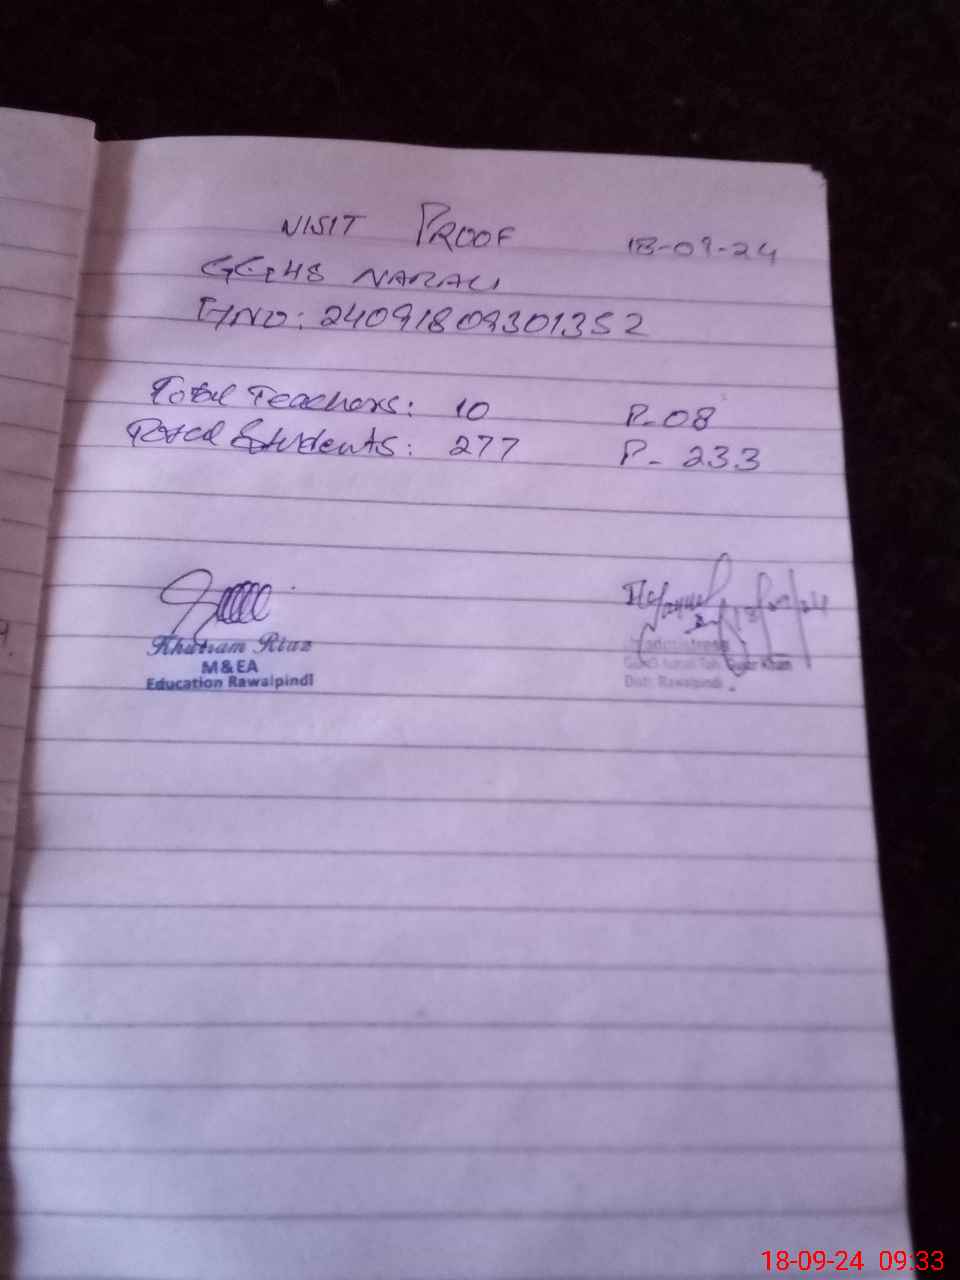 VISIT PROOF 18-09-24
GGHS NARALI
T/NO: 24091809301352
Total Teachers: 10 P-08
Total Students: 277 P- 233
Khurram Riaz
M&EA
Education Rawalpindi
18/09/24
Gujar Khan
Distt Rawalpindi
18-09-24 09:33